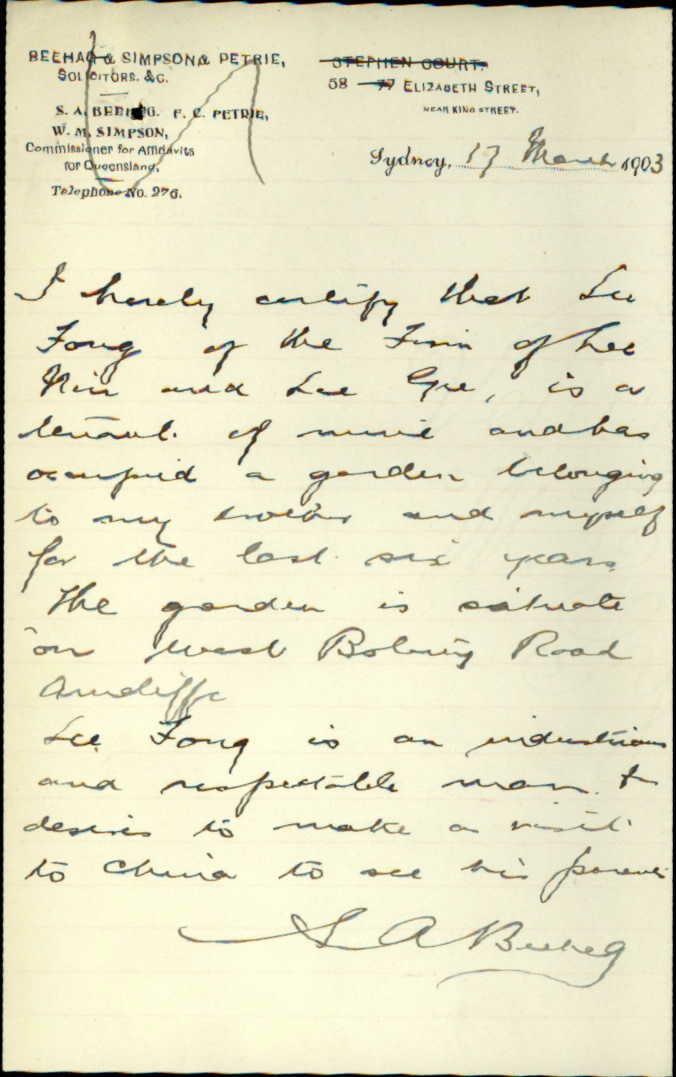 BEEHAG & SIMPSON & PETRIE,
SOLICITORS. &C.
S. A. BEEHAG. F. C. PETRIE,
W. M. SIMPSON,
Commissioner for Affidavits
for Queensland,
Telephone No. 276.
STEPHEN COURT.
58 77 ELIZABETH STREET,
NEAR KING STREET.
Sydney, 17 March 1903
I hereby certify that Lee
Fong of the Firm of Lee
and Lee Gee, is a
tenant of mine and has
occupied a garden belonging
to my brother and myself
for the last six years
The garden is situate
on West Botany Road
Arncliffe
Lee Fong is an industrious
and respectable man &
desires to make a visit
to China to see his parents
S A Beehag